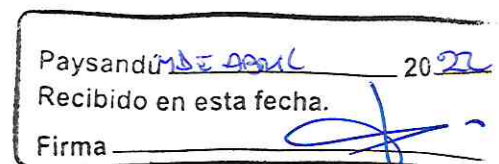 Paysandú 11 DE ABRIL 2022
Recibido en esta fecha.
Firma